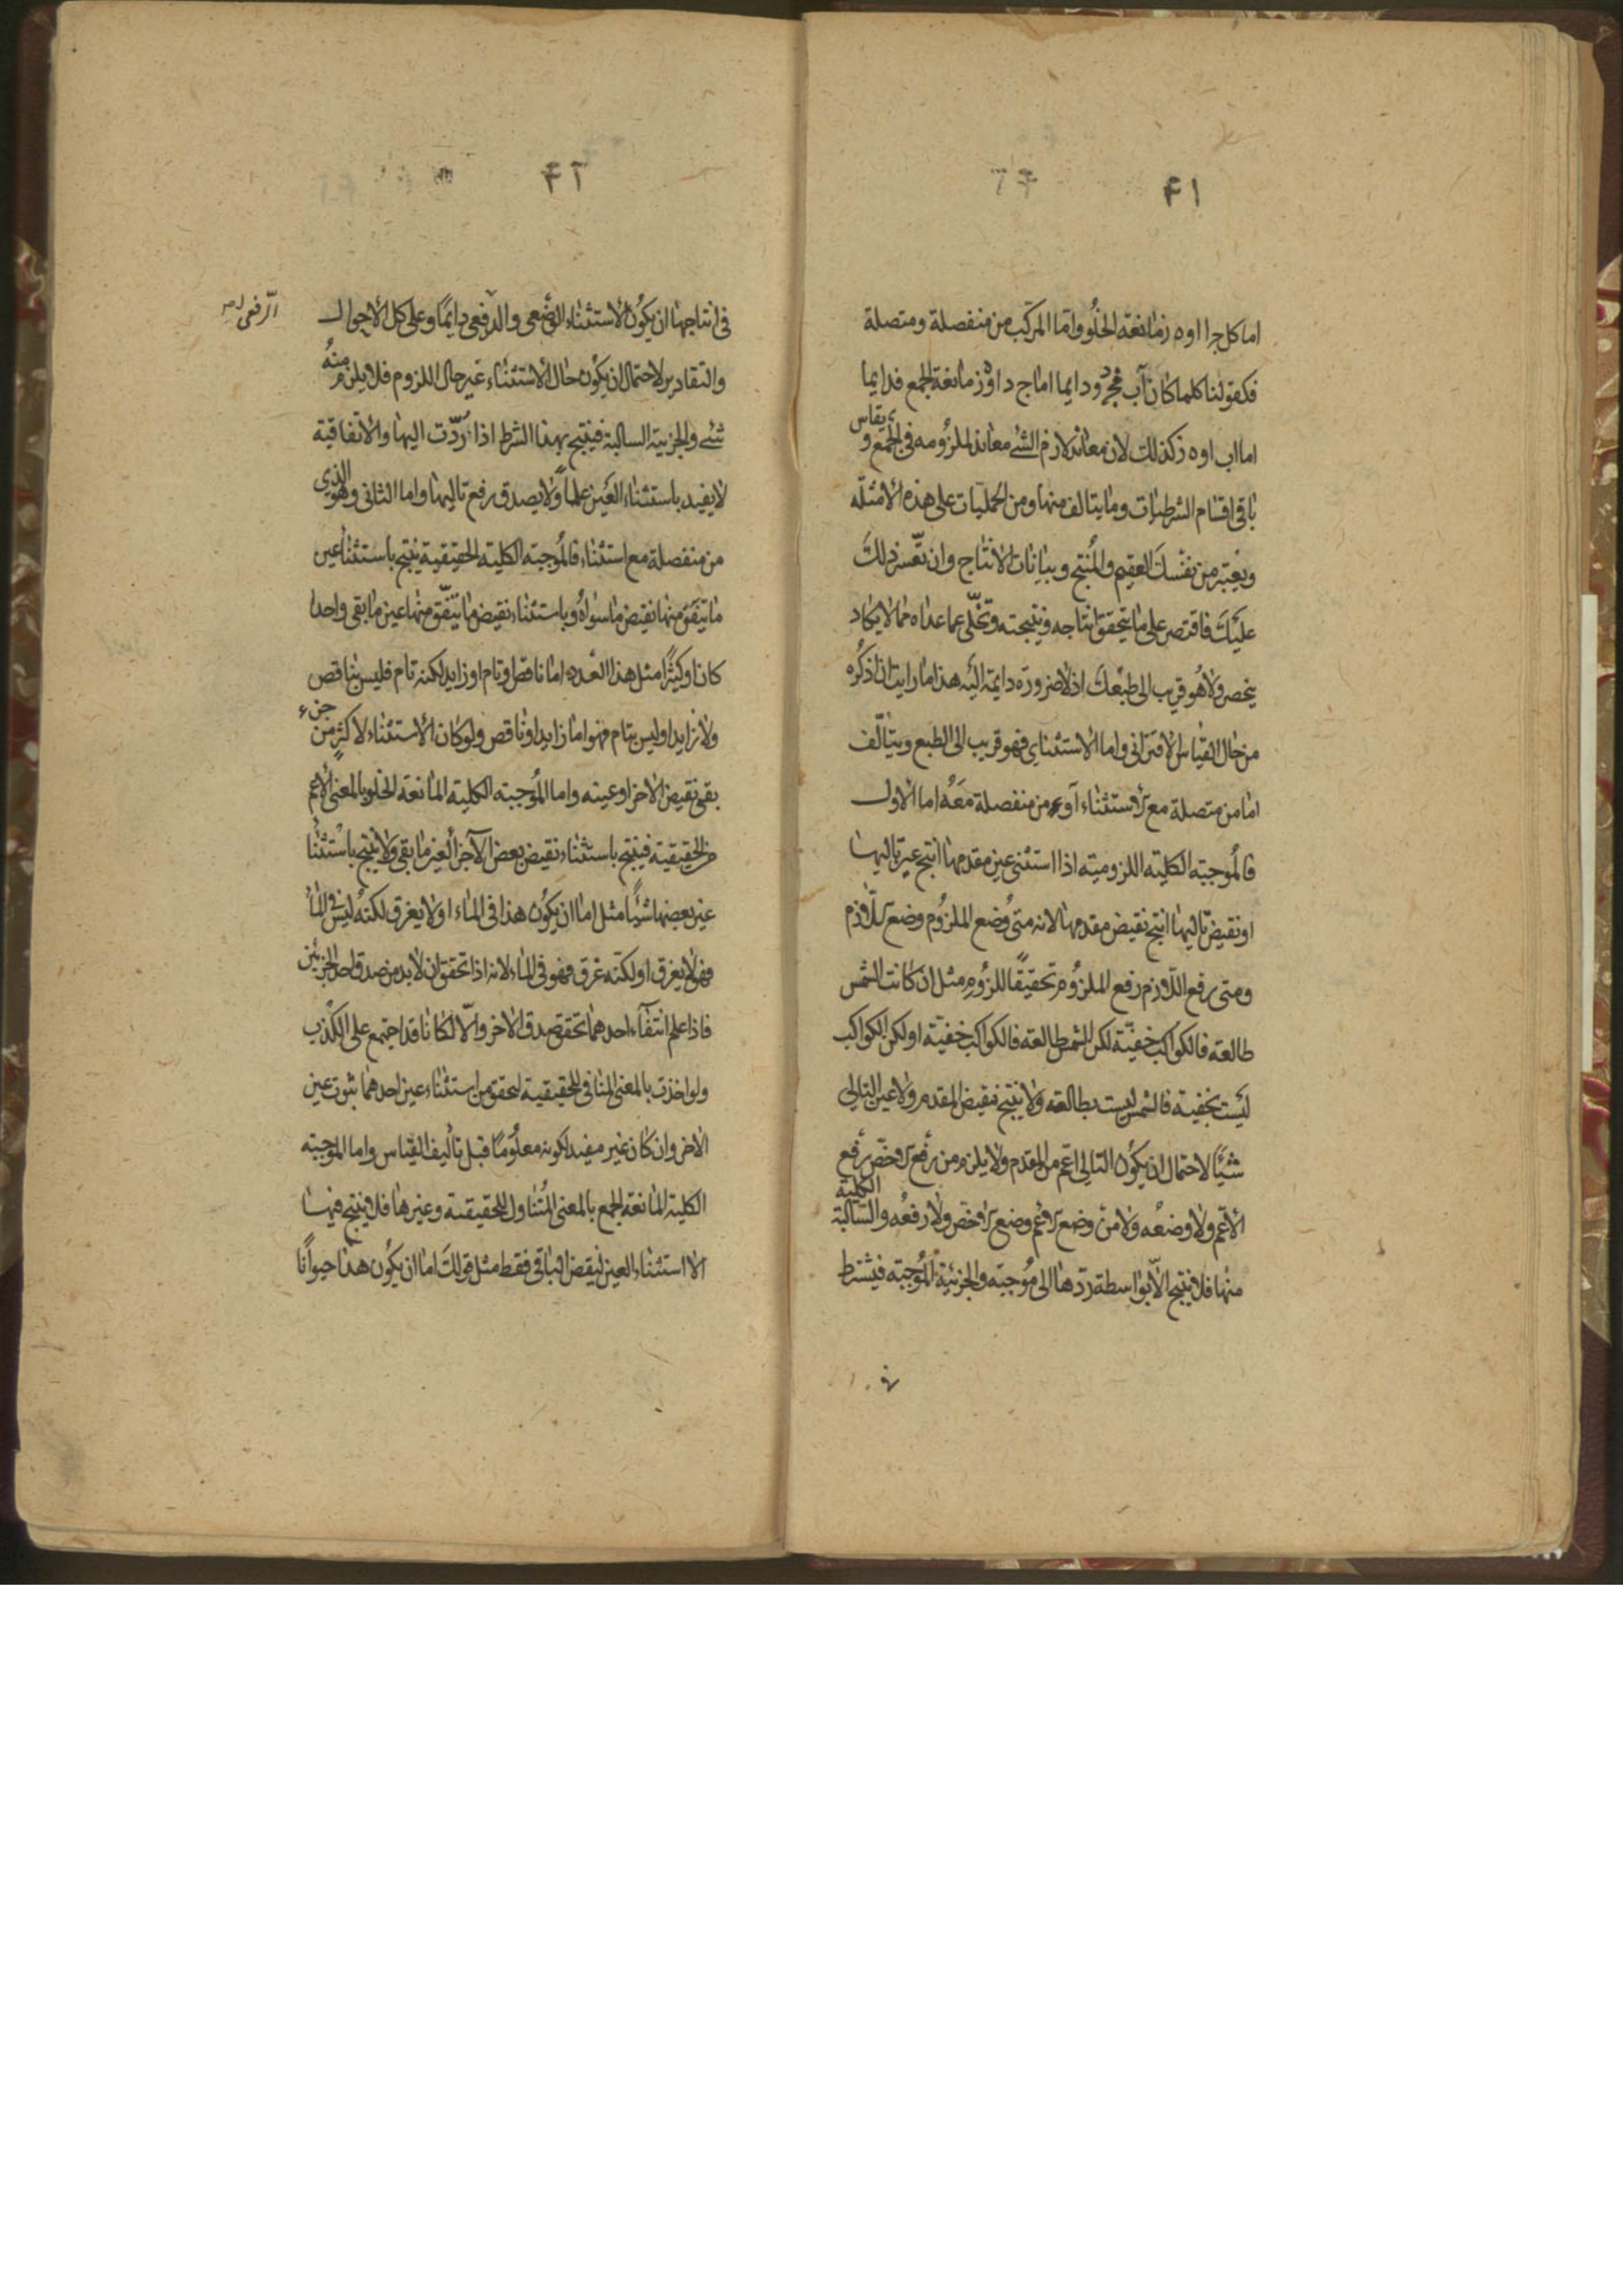 ۴۱
اما كل ج ا او ه ز مانعة الخلو واما المركب من منفصلة ومتصلة
فكقولنا كلما كان آب فجد ودايما اما ج د او ه ز مانعة الجمع فدايما
اما اب او ه ز كذلك لان معاند لازم الشئ معاند لملزومه فى الجمع و يقاس
باقى اقسام الشرطيات وما يتالف منها ومن الحمليات على هذه الامثلة
ويعتبر من نفسك العقيم والمنتج وبيانات الانتاج وان تعسر ذلك
عليك فاقتصر على ما يتحقق انتاجه ونتيجته وتخلى عما عداه مما لا يكاد
ينحصر ولا هو قريب الى طبعك اذ لا ضرورة دايمة اليه هذا ما رايت ان اذكره
من حال القياس الاقترانى واما الاستثنائى فهو قريب الى الطبع ويتالف
اما من متصلة مع الاستثناء او من منفصلة معه اما الاول
فالموجبة الكلية اللزومية اذا استثنى عين مقدمها انتج عين تاليها
او نقيض تاليها انتج نقيض مقدمها لانه متى وضع الملزوم وضع اللازم
ومتى رفع اللازم رفع الملزوم تحقيقًا للزوم مثل ان كانت الشمس
طالعة فالكواكب خفيّة لكن الشمس طالعة فالكواكب خفية او لكن الكواكب
ليست بخفية فالشمس ليست بطالعة ولا ينتج نقيض المقدم ولا عين التالى
شيئًا لاحتمال ان يكون التالى اعم من المقدم ولا يلزم من رفع الاخص رفع
الاعم ولا وضعه ولا من وضع الاعم وضع الاخص ولا رفعه والسالبة الكلية
منها فلا ينتج الا بواسطة ردها الى موجبة والجزئية الموجبة فيشترط
۴۲
فى انتاجها ان يكون الاستثناء الوضعى والرفعى دايمًا وعلى كل الاحوال
الرفعى
والتقادير لاحتمال ان يكون حال الاستثناء غير حال اللزوم فلا يلزم منه
شئ والجزية السالبة فينتج بهذا الشرط اذا ردّت اليها والاتفاقية
لا يفيد باستثناء العين علما ولا يصدق رفع تاليها واما الثانى وهو الذى
من منفصلة مع استثناء فالموجبة الكلية الحقيقية ينتج باستثناء عين
ما يتفق منها نقيض ما سواه وباستثناء نقيض ما يتفق منها عين ما بقى واحدا
كان او كثيرًا مثل هذا العدد اما ناقص او تام او زايد لكنه تام فليس بناقص
ولا زايد او ليس بتام فهو اما زايد او ناقص ولو كان الاستثناء لاكثر من جزء
بقى نقيض الاخر او عينه واما الموجبة الكلية المانعة الخلو بالمعنى الاعم
من الحقيقية فينتج باستثناء نقيض بعض الاجزا لعين ما بقى ولا ينتج باستثنا
عين بعضها شيئًا مثل اما ان يكون هذا فى الماء او لا يغرق لكنه ليس فى الما
فهو لا يغرق او لكنه غرق فهو فى الماء لانه اذا تحقق ان لا بد من صدق احد الجزئين
فاذا علم انتفآء احدهما تحقق صدق الاخر والّا لكانا قد اجتمع على الكذب
ولو اخذت بالمعنى المنافى للحقيقية لتحقق من استثناء عين احدهما ثبوت عين
الاخر وان كان غير مفيد لكونه معلومًا قبل تاليف القياس واما الموجبة
الكلية المانعة الجمع بالمعنى المتناول للحقيقية وغيرها فلا ينتج فيها
الا استثناء العين لنقيض الباقى فقط مثل قولك اما ان يكون هذا حيوانًا